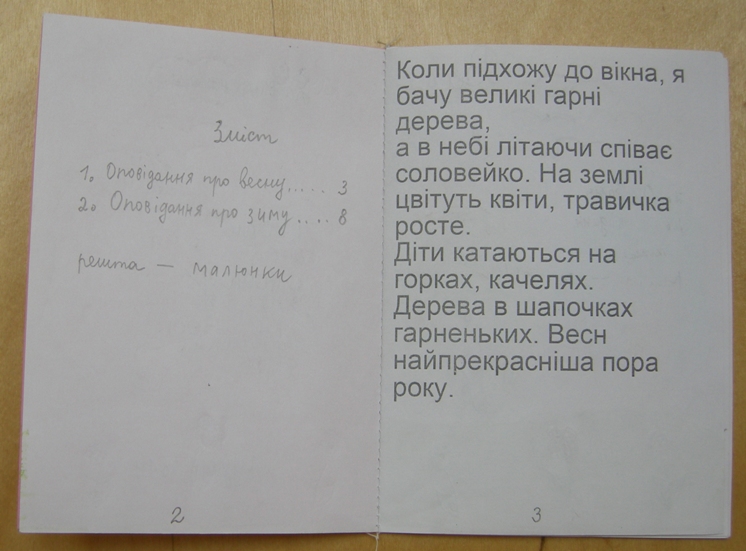 Зміст
1. Оповідання про весну..... 3
2. Оповідання про зиму.... 8
решта — малюнки
2
Коли підхожу до вікна, я
бачу великі гарні
дерева,
а в небі літаючи співає
соловейко. На землі
цвітуть квіти, травичка
росте.
Діти катаються на
горках, качелях.
Дерева в шапочках
гарненьких. Весн
найпрекрасніша пора
року.
3